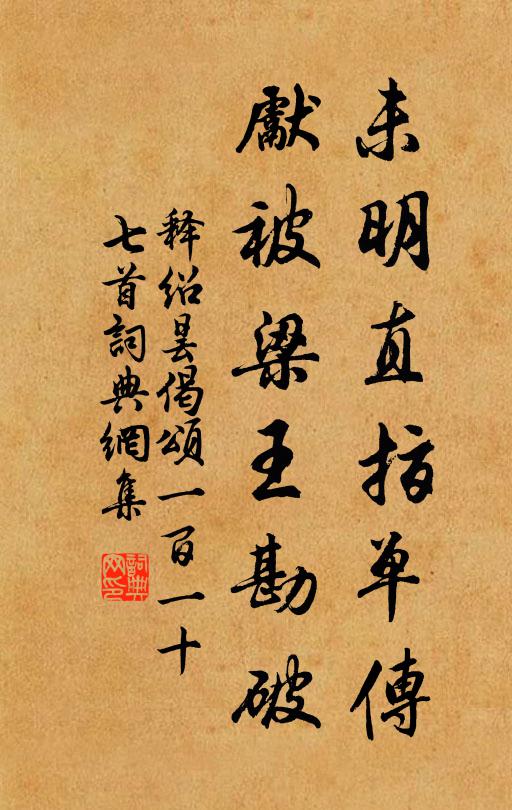 未明直指单傳
獻被梁王勘破
释绍昙偈頌一百一十
七首詞典網集
詞典
网印